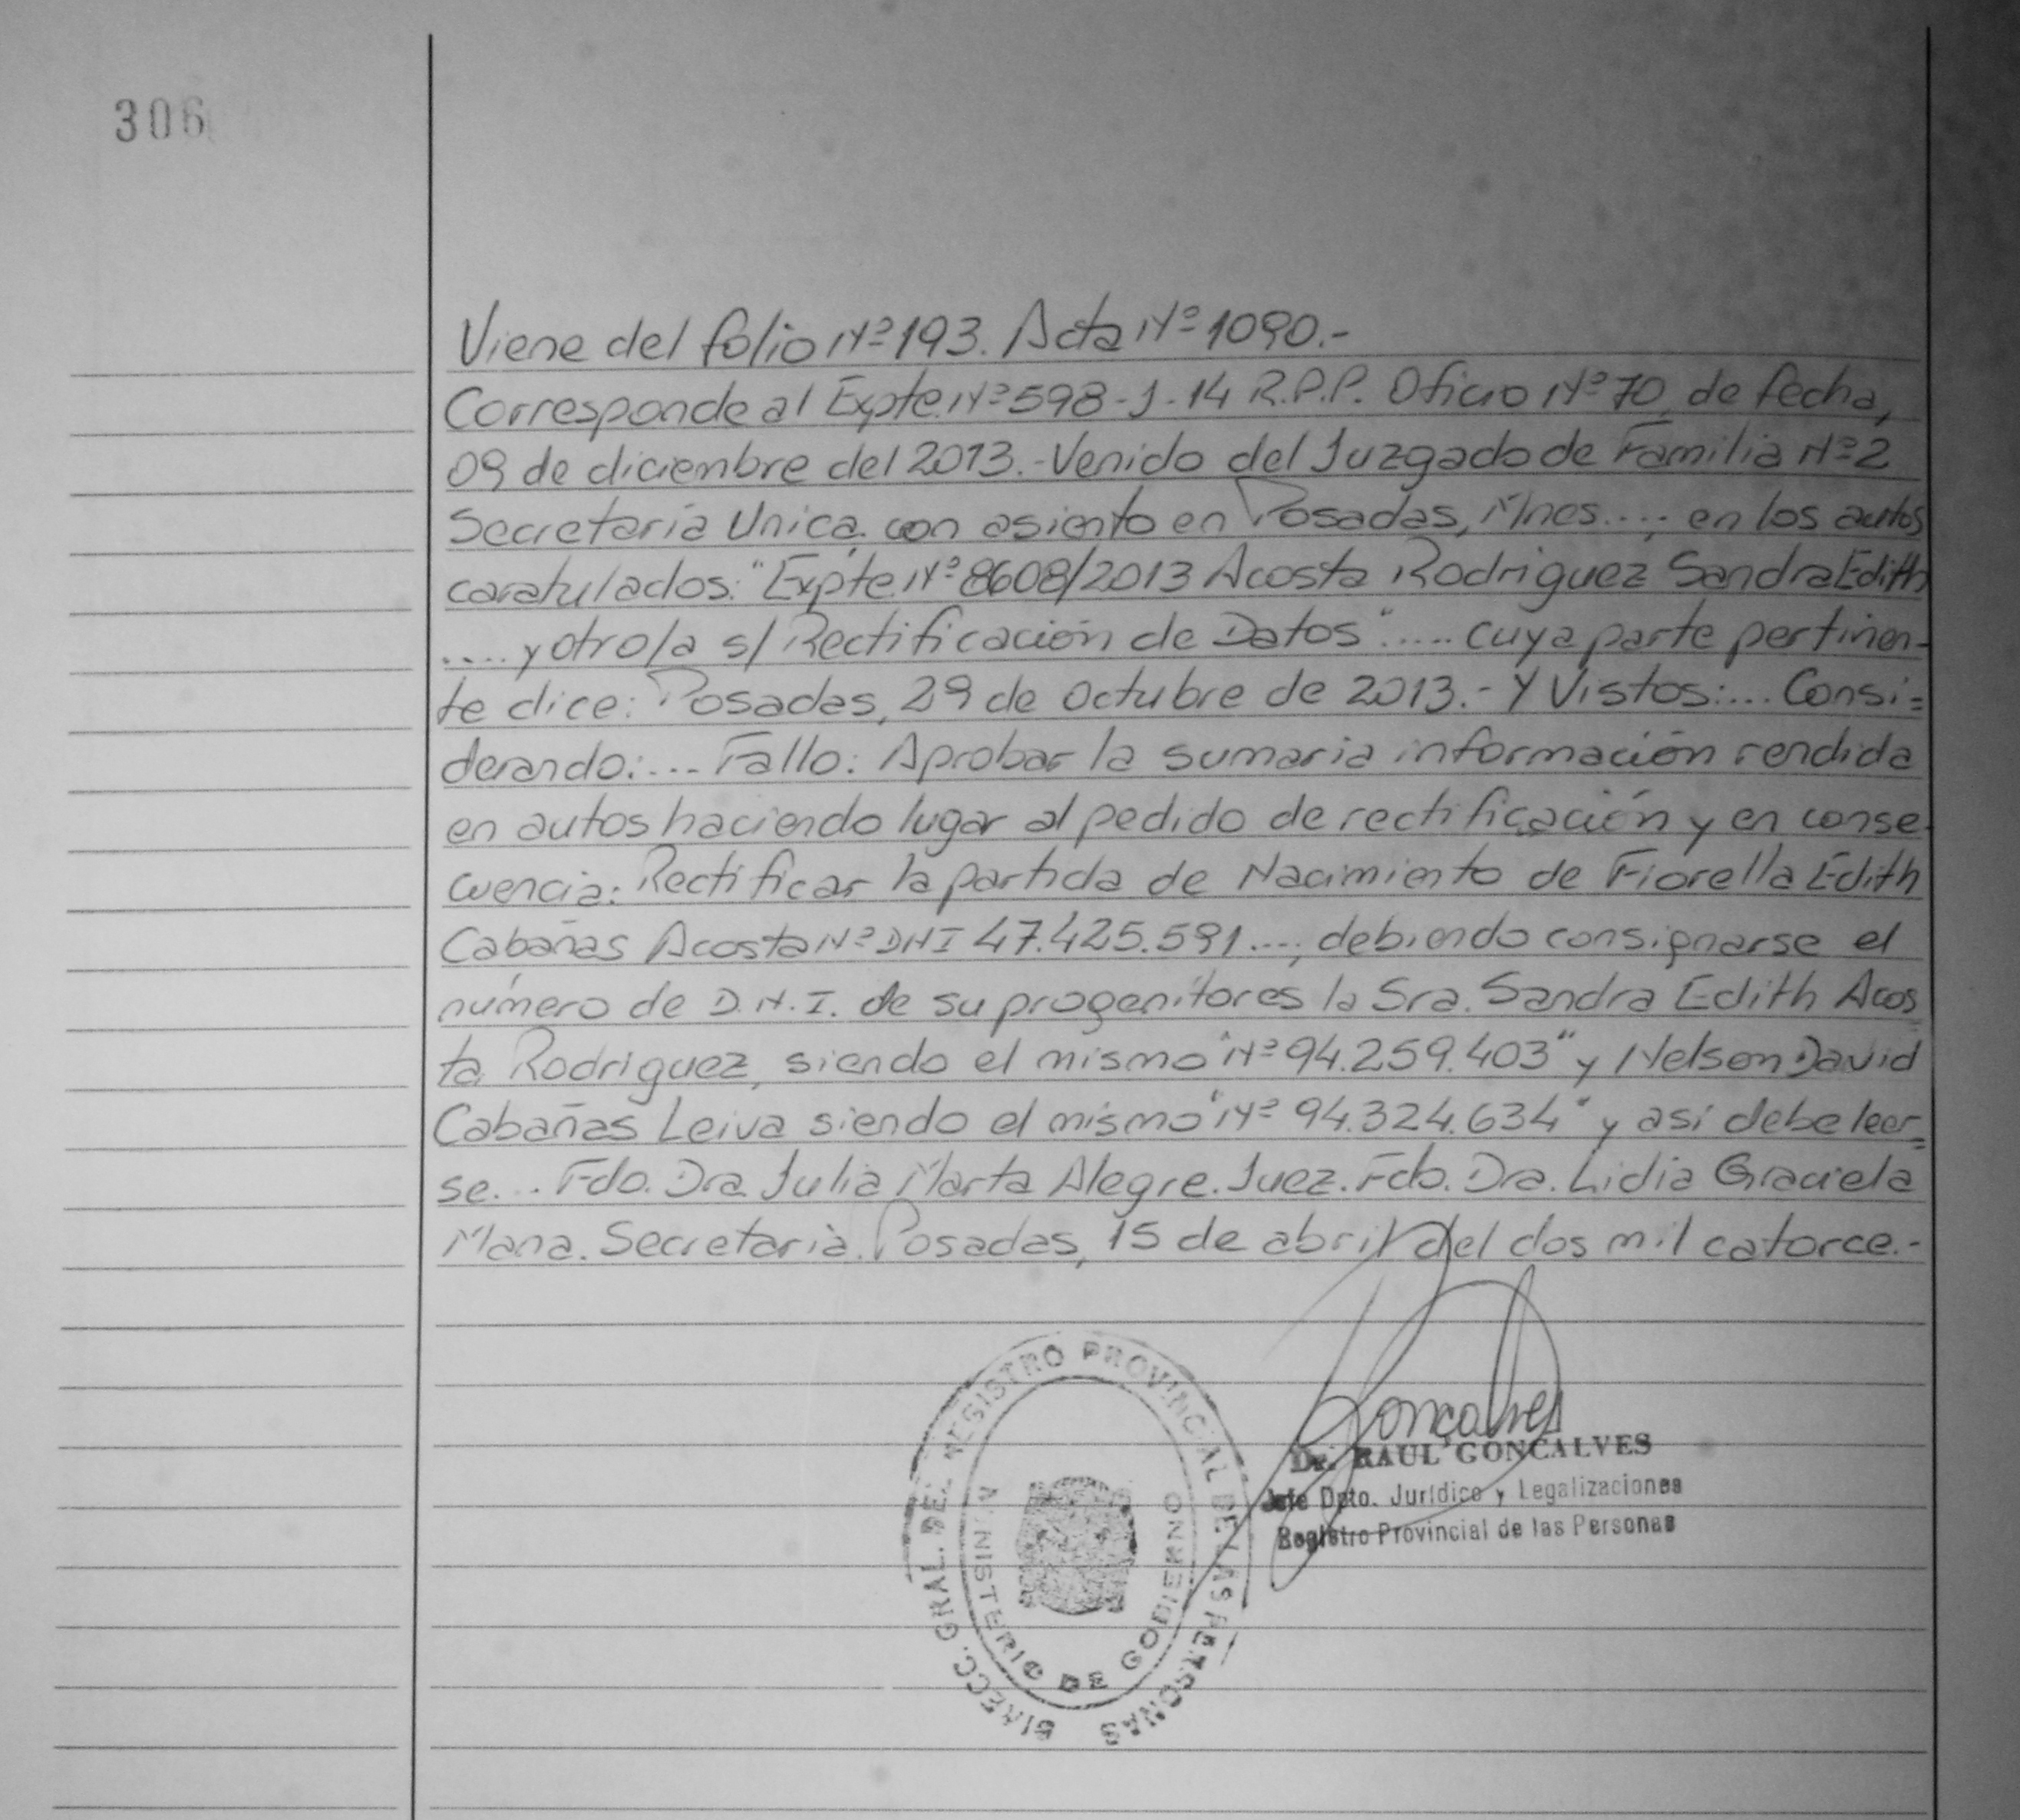 306
Viene del folio Nº 193. Acta Nº 1090.-
Corresponde al Expte. Nº 598-J-14 R.P.P. Oficio Nº 70, de fecha,
09 de diciembre del 2013.- Venido del Juzgado de Familia Nº 2
Secretaría Unica, con asiento en Posadas, Mnes....; en los autos
caratulados: "Expte Nº 8608/2013 Acosta Rodriguez Sandra Edith
.... y otro/a s/ Rectificación de Datos"..... cuya parte pertinen-
te dice: Posadas, 29 de Octubre de 2013.- Y Vistos:.... Consi=
derando:.... Fallo: Aprobar la sumaria información rendida
en autos haciendo lugar al pedido de rectificación y en conse-
cuencia: Rectificar la partida de Nacimiento de Fiorella Edith
Cabañas Acosta Nº DNI 47.425.591...., debiendo consignarse el
número de D.N.I. de su progenitores la Sra. Sandra Edith Acos
ta Rodriguez, siendo el mismo "Nº 94.259.403" y Nelson David
Cabañas Leiva siendo el mismo "Nº 94.324.634" y así debe leer=
se... Fdo. Dra. Julia Marta Alegre. Juez. Fdo. Dra. Lidia Graciela
Mana. Secretaria. Posadas, 15 de abril del dos mil catorce.-
Goncalves
Dr. RAUL GONCALVES
Jefe Dpto. Jurídico y Legalizaciones
Registro Provincial de las Personas
DIRECC. GRAL. DEL REGISTRO PROVINCIAL DE LAS PERSONAS
MINISTERIO DE GOBIERNO